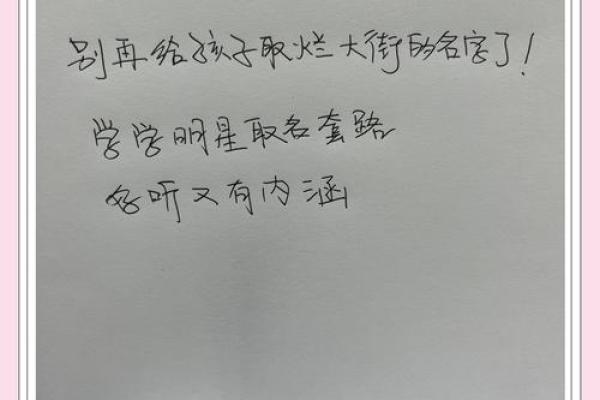 别再给孩子取烂大街的名字了!
学学明星取名套路
好听又有内涵